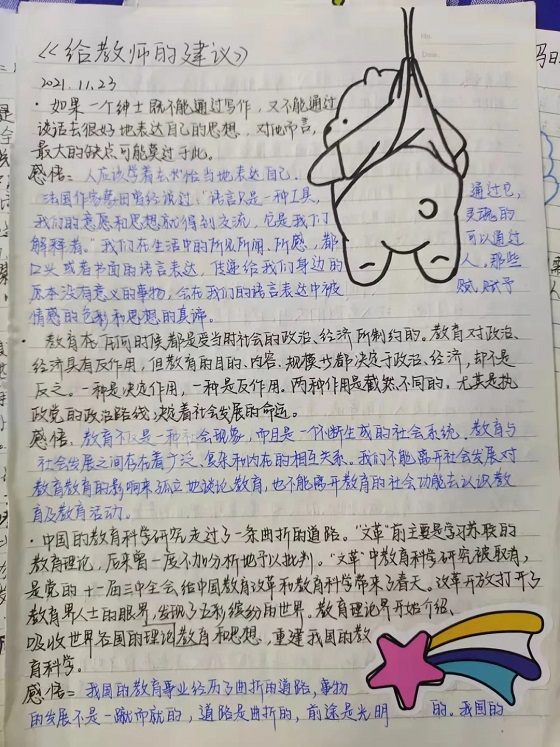 《给教师的建议》
2021.11.23
·如果一个绅士既不能通过写作,又不能通过
谈话去很好地表达自己的思想,对他而言,
最大的缺点可能莫过于此。
感悟:人应该学着去恰当地表达自己.
法国作家蒙田曾经说过:"语言只是一种工具, 通过它,
我们的意愿和思想就得到交流,它是我们 灵魂的
解释者."我们在生活中的所见所闻、所感,都 可以通过
口头或者书面的语言表达,传递给我们身边的 人,那些
原本没有意义的事物,会在我们的语言表达中被 赋赋予
情感的色彩和思想的真谛。
·教育在任何时候都是受当时社会的政治、经济所制约的。教育对政治、
经济具有反作用,但教育的目的、内容、规模也都决定于政治、经济,却不是
反之。一种是决定作用,一种是反作用。两种作用是截然不同的,尤其是执
政党的政治路线,决定着社会发展的命运。
感悟:教育不仅是一种社会现象,而且是一个不断生成的社会系统、教育与
社会发展之间存在着广泛、复杂和内在的相互关系。我们不能离开社会发展对
教育教育的影响来孤立地谈论教育,也不能离开教育的社会功能去认识教
育及教育活动。
·中国的教育科学研究走过了一条曲折的道路。"文革"前主要是学习苏联的
教育理论,后来曾一度不加分析地予以批判。"文革"中教育科学研究被取消,
是党的十一届三中全会给中国教育改革和教育科学带来了春天。改革开放打开了
教育界人士的眼界,发现了五彩缤纷的世界。教育理论界开始介绍、
吸收世界各国的理论教育和思想,重建我国的教
育科学。
感悟:我国的教育事业经历了曲折的道路,事物
的发展不是一蹴而就的,道路是曲折的,前途是光明 的。我国的